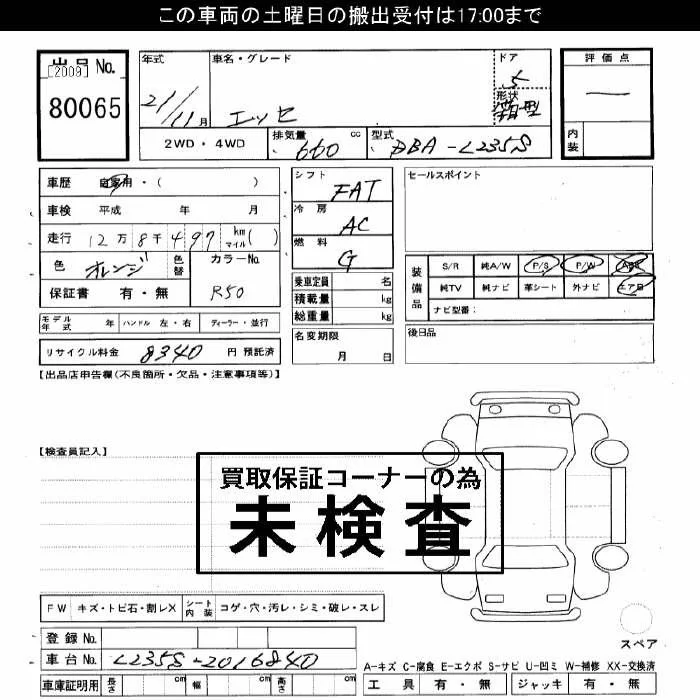 この車両の土曜日の搬出受付は17:00まで
出品No.
[2009]
80065
年式 車名・グレード ドア
21/11月 エッセ 5
形状
箱型
2WD・4WD 排気量 660 cc 型式 DBA-L235S
評価点
—
内装
車歴 自家用・( )
車検 平成 年 月
走行 12万8千497 km マイル ( )
色 オレンジ 色替 カラーNo. R50
保証書 有・無
モデル年式 年 ハンドル 左・右 ディーラー・並行
リサイクル料金 8340 円 預託済
シフト FAT
冷房 AC
燃料 G
乗車定員 名
積載量 kg
総重量 kg
名変期限 月 日
セールスポイント
装備品
S/R 純A/W P/S P/W ABS
純TV 純ナビ 革シート 外ナビ エアB
ナビ型番:
後日品
【出品店申告欄(不良箇所・欠品・注意事項等)】
【検査員記入】
買取保証コーナーの為
未検査
FW キズ・トビ石・割レX シート内装 コゲ・穴・汚レ・シミ・破レ・スレ
登録No.
車台No. L235S-2016840
車庫証明用 長さ cm 幅 cm 高さ cm
スペア
A-キズ C-腐食 E-エクボ S-サビ U-凹ミ W-補修 XX-交換済
工具 有・無 ジャッキ 有・無